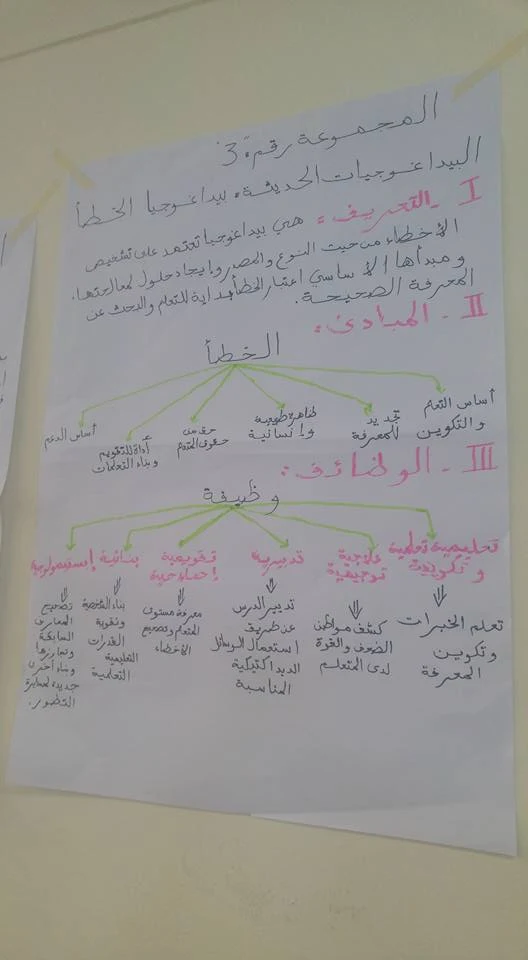 المجموعة رقم: 3
البيداغوجيات الحديثة: بيداغوجيا الخطأ
I - التعريف: هي بيداغوجيا تعتمد على تشخيص
الأخطاء من حيث النوع والمصدر وإيجاد حلول لمعالجتها.
ومبدأها الأساسي اعتبار الخطأ بداية للتعلم والبحث عن
المعرفة الصحيحة.
II - المبادئ:
الخطأ
أساس التعلم
والتكوين
تجديد
للمعرفة
ظاهرة طبيعية
وإنسانية
حق من
حقوق المتعلم
أداة للتقويم
وبناء التعلمات
أساس الدعم
III - الوظائف:
وظيفة
تعليمية تعلمية
و تكوينية
تعلم الخبرات
وتكوين
المعرفة
علاجية
توجيهية
كشف مواطن
الضعف والقوة
لدى المتعلم
تدبيرية
تدبير الدرس
عن طريق
استعمال الوسائل
الديداكتيكية
المناسبة
تقويمية
معرفة مستوى
المتعلم وتصحيح
الأخطاء
بنائية
بناء الشخصية
وتقوية
القدرات
التعليمية
التعلمية
إبستيمولوجية
تصحيح
المعارف
السابقة
وتجاوزها
وبناء أخرى
جديدة لمسايرة
التطور.